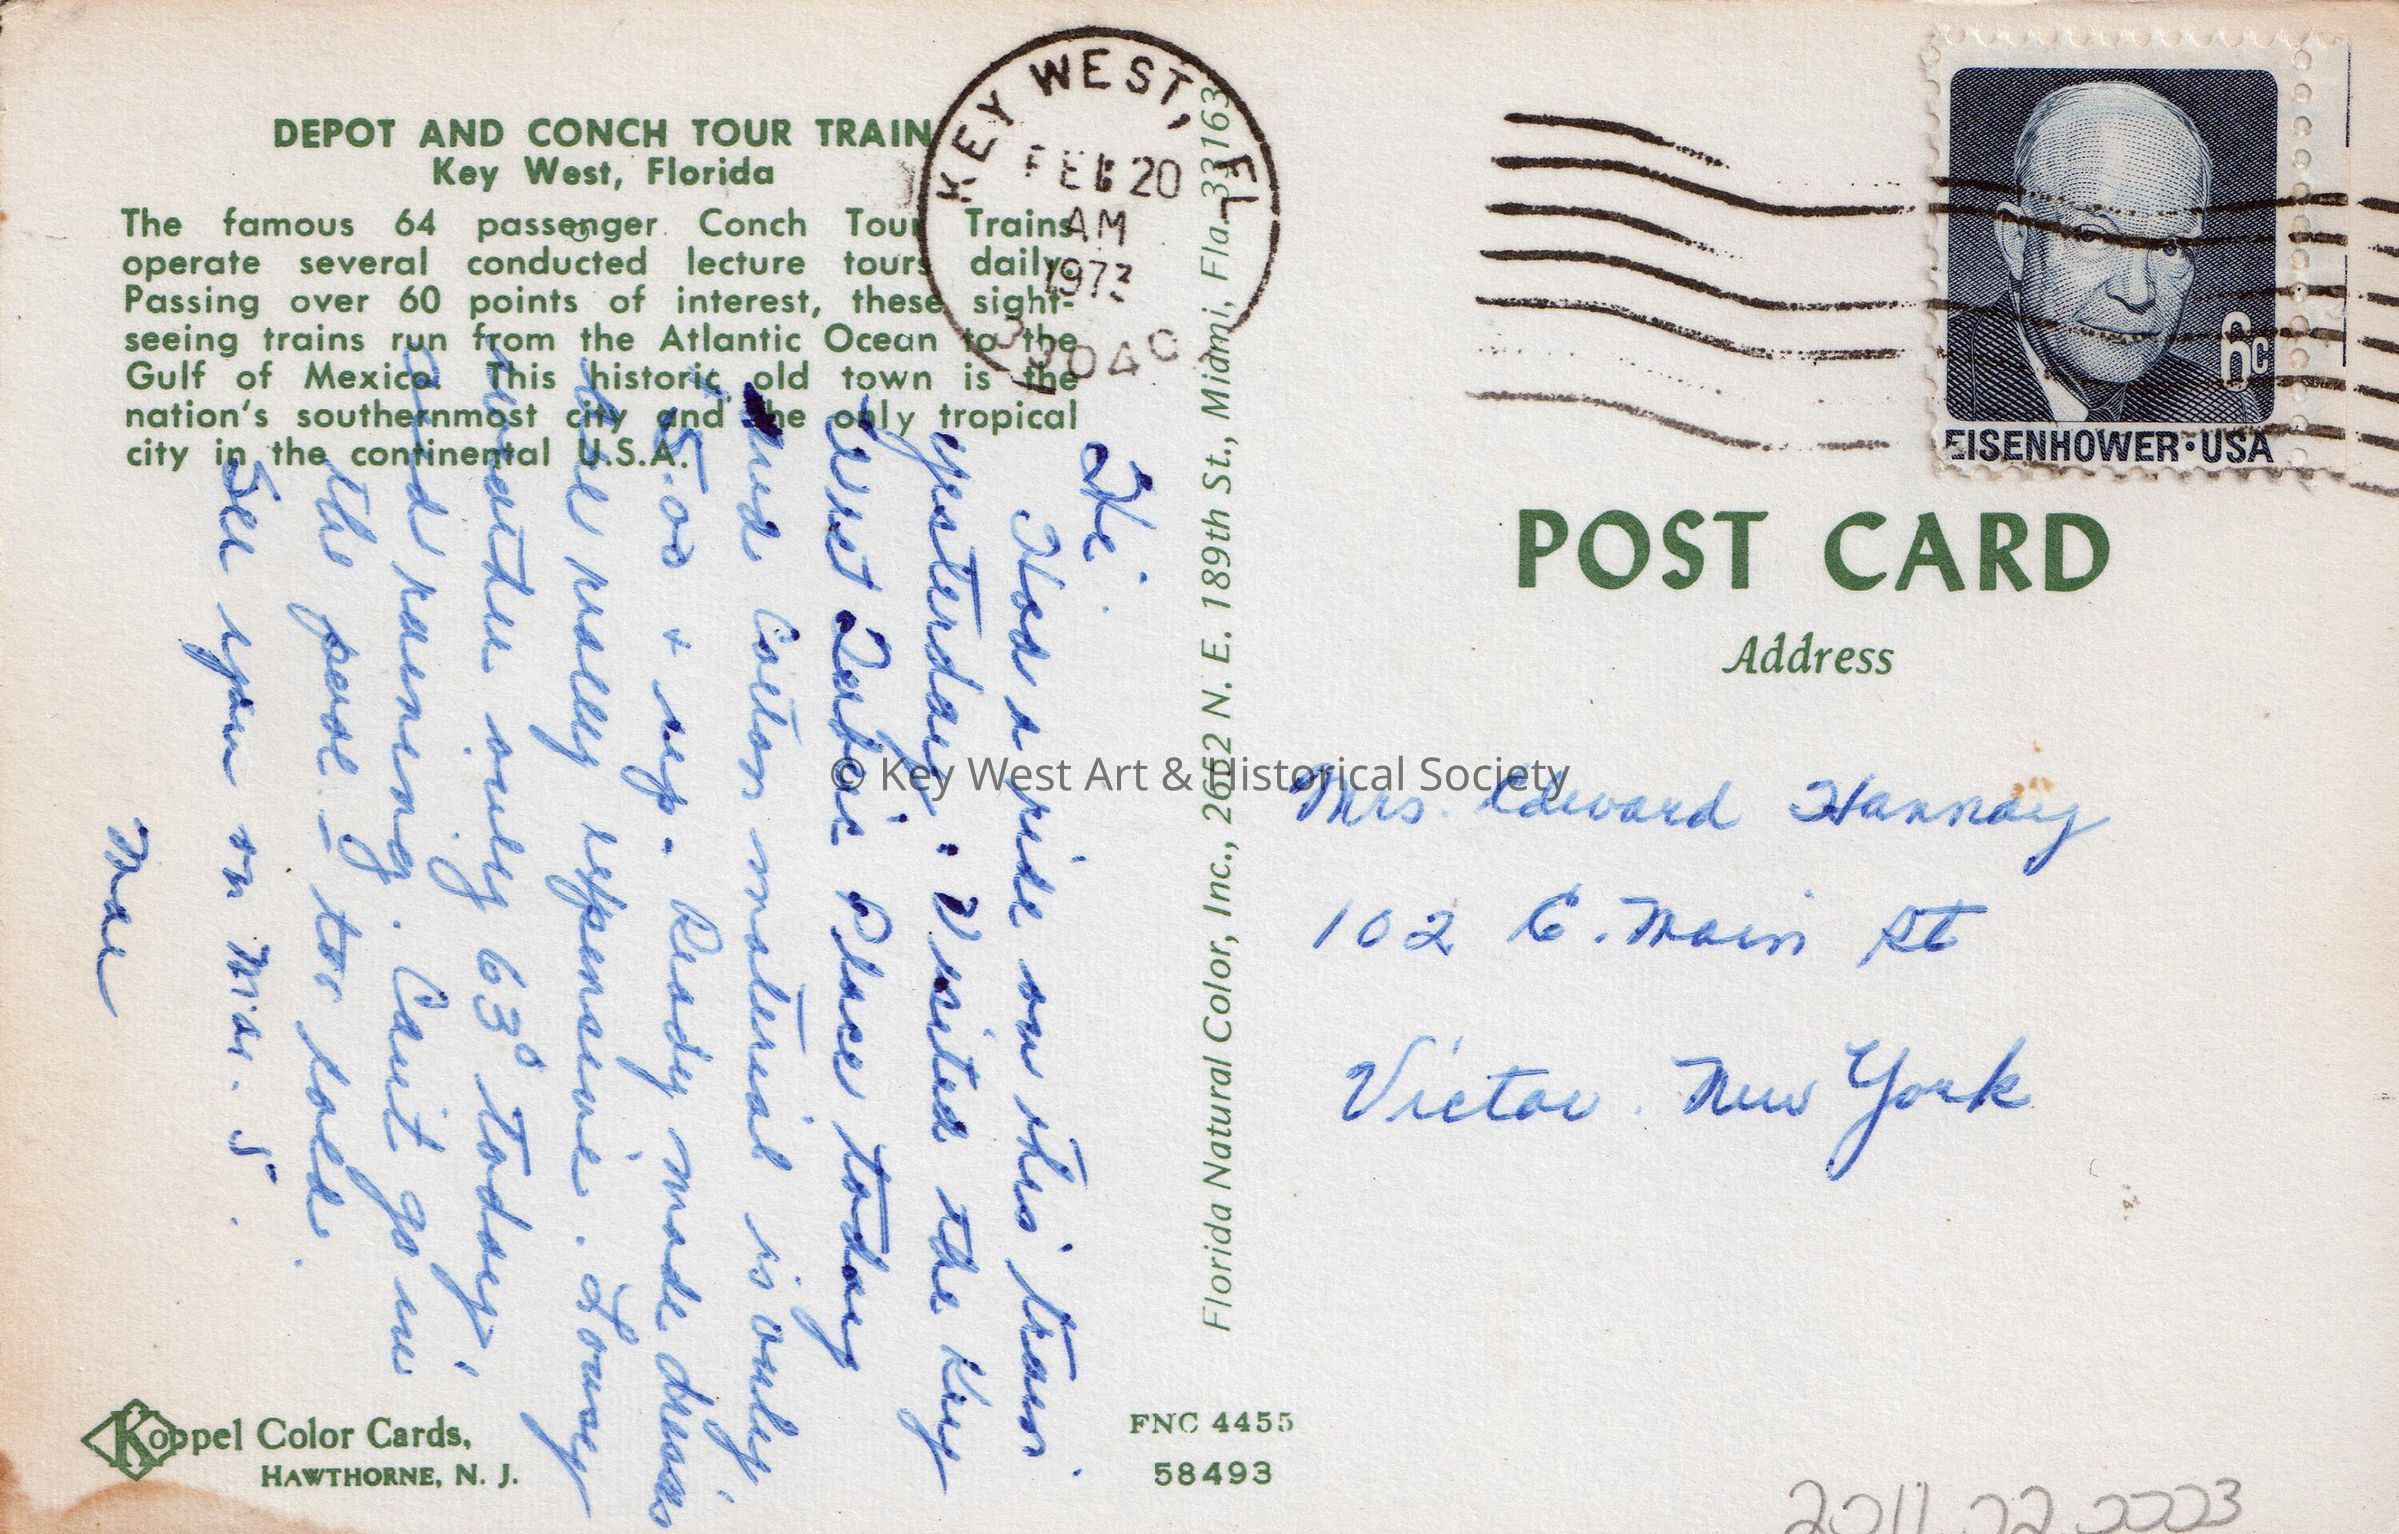 DEPOT AND CONCH TOUR TRAIN
Key West, Florida
The famous 64 passenger Conch Tour Trains
operate several conducted lecture tours daily.
Passing over 60 points of interest, these sight-
seeing trains run from the Atlantic Ocean to the
Gulf of Mexico. This historic old town is the
nation's southernmost city and the only tropical
city in the continental U.S.A.
KEY WEST, FL
FEB 20
AM
1973
EISENHOWER·USA
6c
POST CARD
Address
Mrs. Edward Hannay
102 E. Main St
Victor. New York
Hi.
Had a ride on this train
yesterday. Visited the Key
West Fabric Places today
and Cotton material is only
5.00 + up. Ready made dresses
are really expensive. Lousy
weather only 63° today,
and raining. Can't go in
the pool - too cold.
See you on Mar. 5.
Mae
Florida Natural Color, Inc., 2652 N. E. 189th St., Miami, Fla. 33163
© Key West Art & Historical Society
Koppel Color Cards,
HAWTHORNE, N. J.
FNC 4455
58493